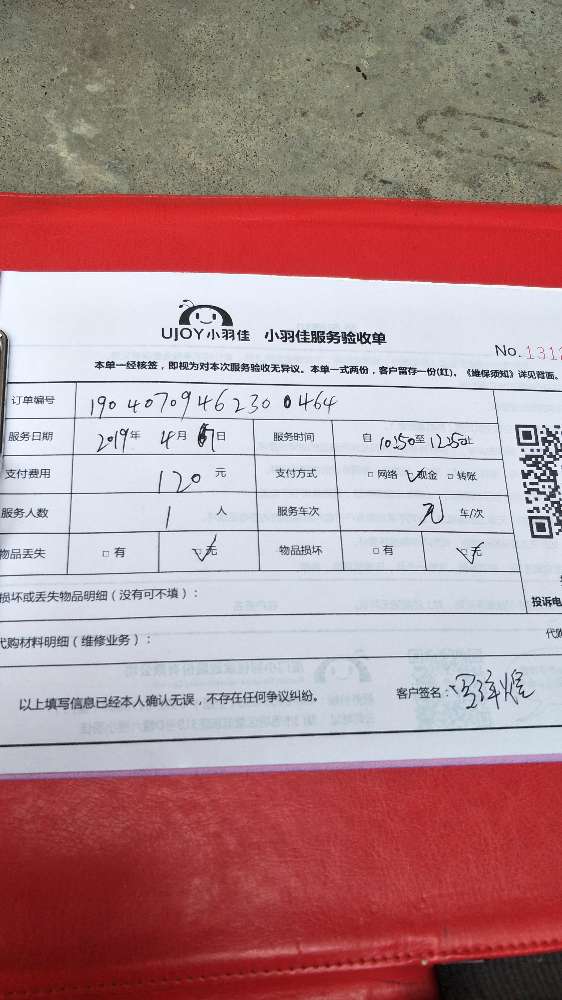 UJOY小羽佳 小羽佳服务验收单
No.1312
本单一经核签，即视为对本次服务验收无异议。本单一式两份，客户留存一份(红)，《维保须知》详见背面。
订单编号 190407094623000464
服务日期 2019年 4月 7日 服务时间 自 10:50至 12:50止
支付费用 120 元 支付方式 □ 网络 ☑ 现金 □ 转账
服务人数 1 人 服务车次 元 车/次
物品丢失 □ 有 ☑ 无 物品损坏 □ 有 ☑ 无
损坏或丢失物品明细（没有可不填）： 投诉电
代购材料明细（维修业务）： 代购
以上填写信息已经本人确认无误，不存在任何争议纠纷。 客户签名：